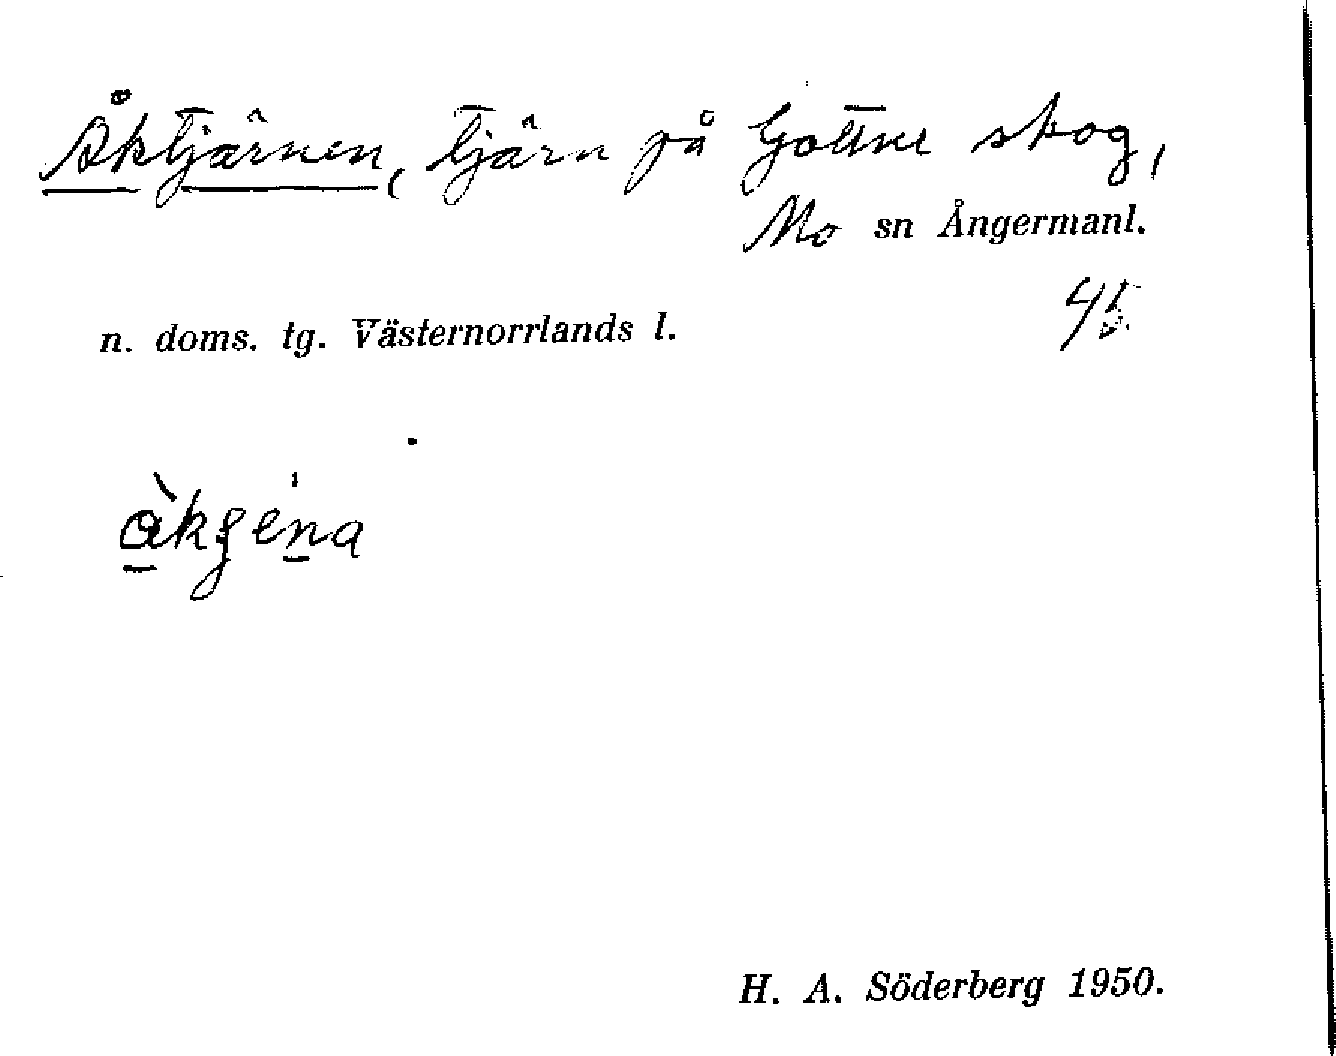 Åktjärnen, tjärn på Gottne skog,
Mo sn Ångermanl.
n. doms. tg. Västernorrlands l.
45
H. A. Söderberg 1950.